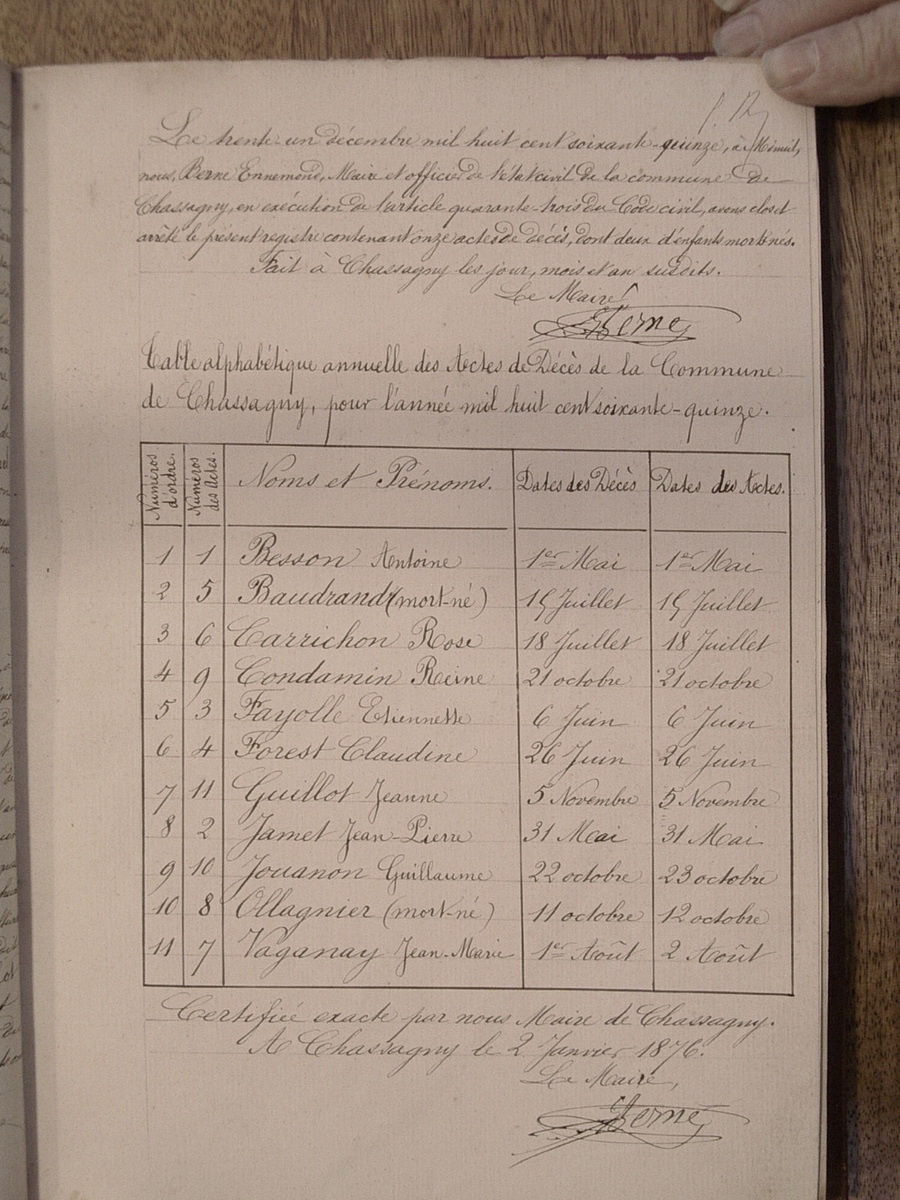 Le trente-un décembre mil huit cent soixante-quinze, à Minuit,
nous, Berne Ennemond, Maire et officier de l'état civil de la commune de
Chassagny, en exécution de l'article quarante-trois du Code civil, avons clos et
arrêté le présent registre contenant onze actes de décès, dont deux d'enfants mort-nés.
Fait à Chassagny les jour, mois et an susdits.
Le Maire,
Berne
Table alphabétique annuelle des Actes de Décès de la Commune
de Chassagny, pour l'année mil huit cent soixante-quinze.
Numéros d'ordre. Numéros des Actes. Noms et Prénoms. Dates des Décès Dates des Actes.
1 1 Besson Antoine 1er Mai 1er Mai
2 5 Baudrand (mort-né) 15 Juillet 15 Juillet
3 6 Carrichon Rose 18 Juillet 18 Juillet
4 9 Condamin Reine 21 octobre 21 octobre
5 3 Fayolle Etiennette 6 Juin 6 Juin
6 4 Forest Claudine 26 Juin 26 Juin
7 11 Guillot Jeanne 5 Novembre 5 Novembre
8 2 Jamet Jean-Pierre 31 Mai 31 Mai
9 10 Jouanon Guillaume 22 octobre 23 octobre
10 8 Ollagnier (mort-né) 11 octobre 12 octobre
11 7 Vaganay Jean-Marie 1er Août 2 Août
Certifiée exacte par nous Maire de Chassagny.
A Chassagny le 2 Janvier 1876.
Le Maire,
Berne